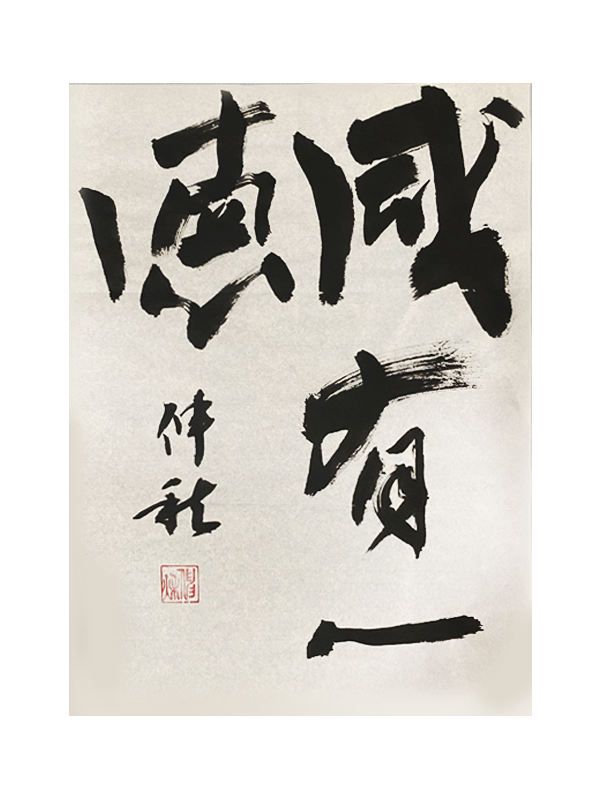 咸有一
德
伟秋